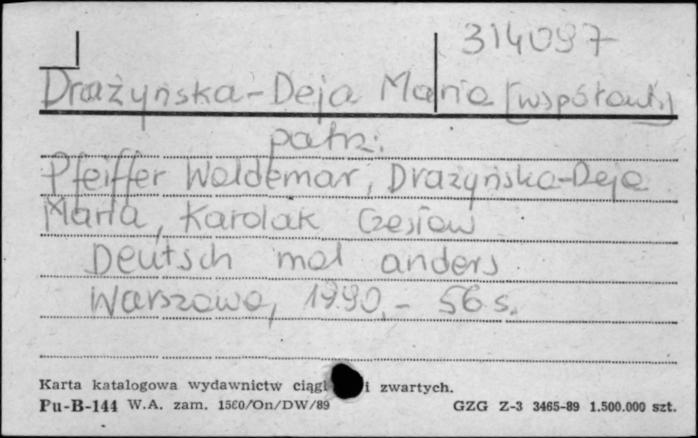 314097
Drażyńska-Deja Maria [współaut.]
patrz:
Pfeiffer Waldemar, Drażyńska-Deja
Maria, Karolak Czesław
Deutsch mal anders
Warszawa, 1990.- 56 s.
Karta katalogowa wydawnictw ciągł i zwartych.
Pu-B-144 W.A. zam. 1560/On/DW/89 GZG Z-3 3465-89 1.500.000 szt.